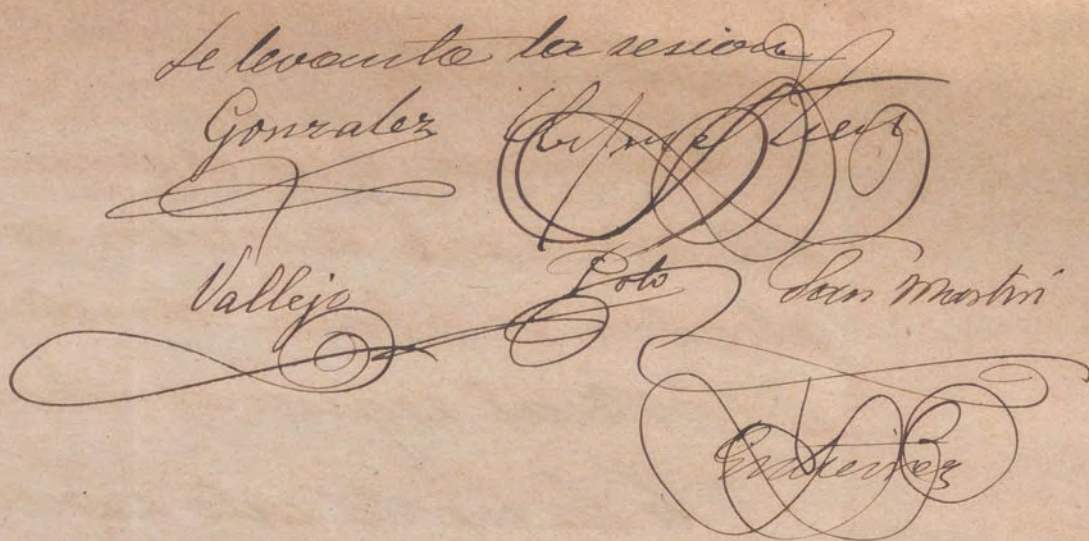 se levanta la sesion
Gonzalez
Vallejo Soto San Martin
Gutierrez